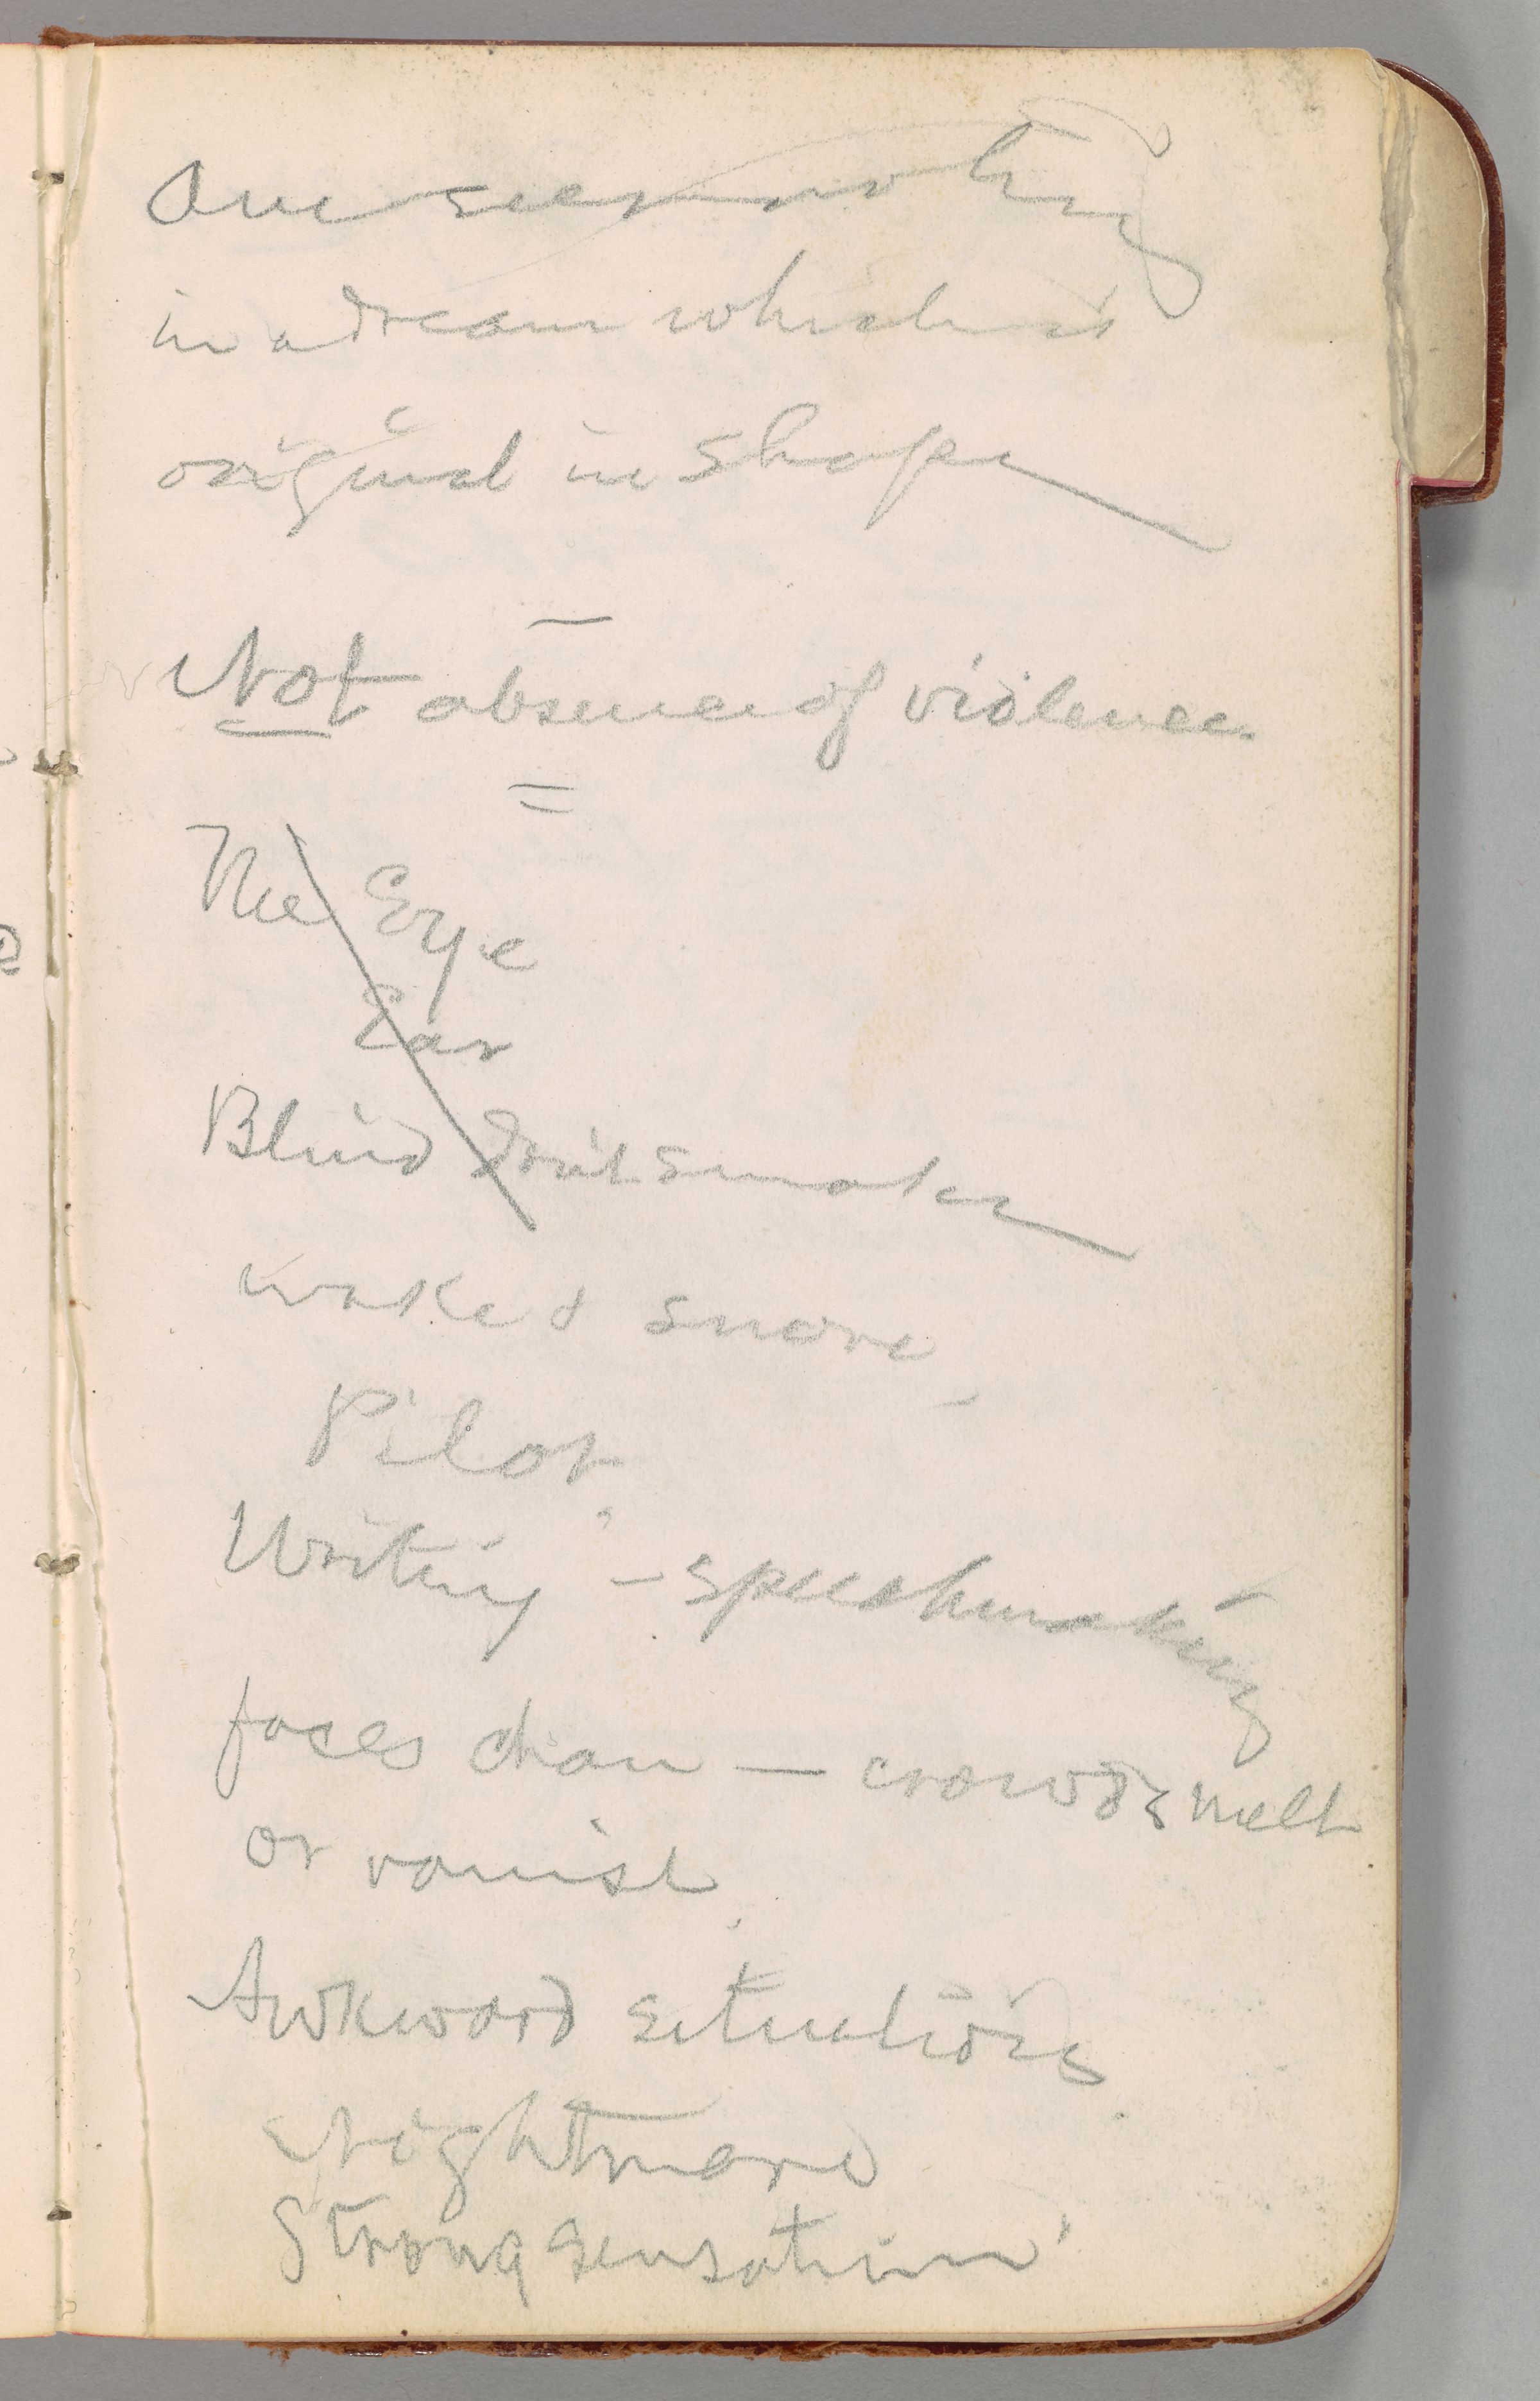 One sees no thing
in a dream which is
original in shape
Not absence of violence.
The Eye
Ear
Blind don't smoke
wake & snore
Pilot
Writing - speechmaking
faces chan — crowds melt
or vanish
Awkward situations
Nightmare
Strong sensation